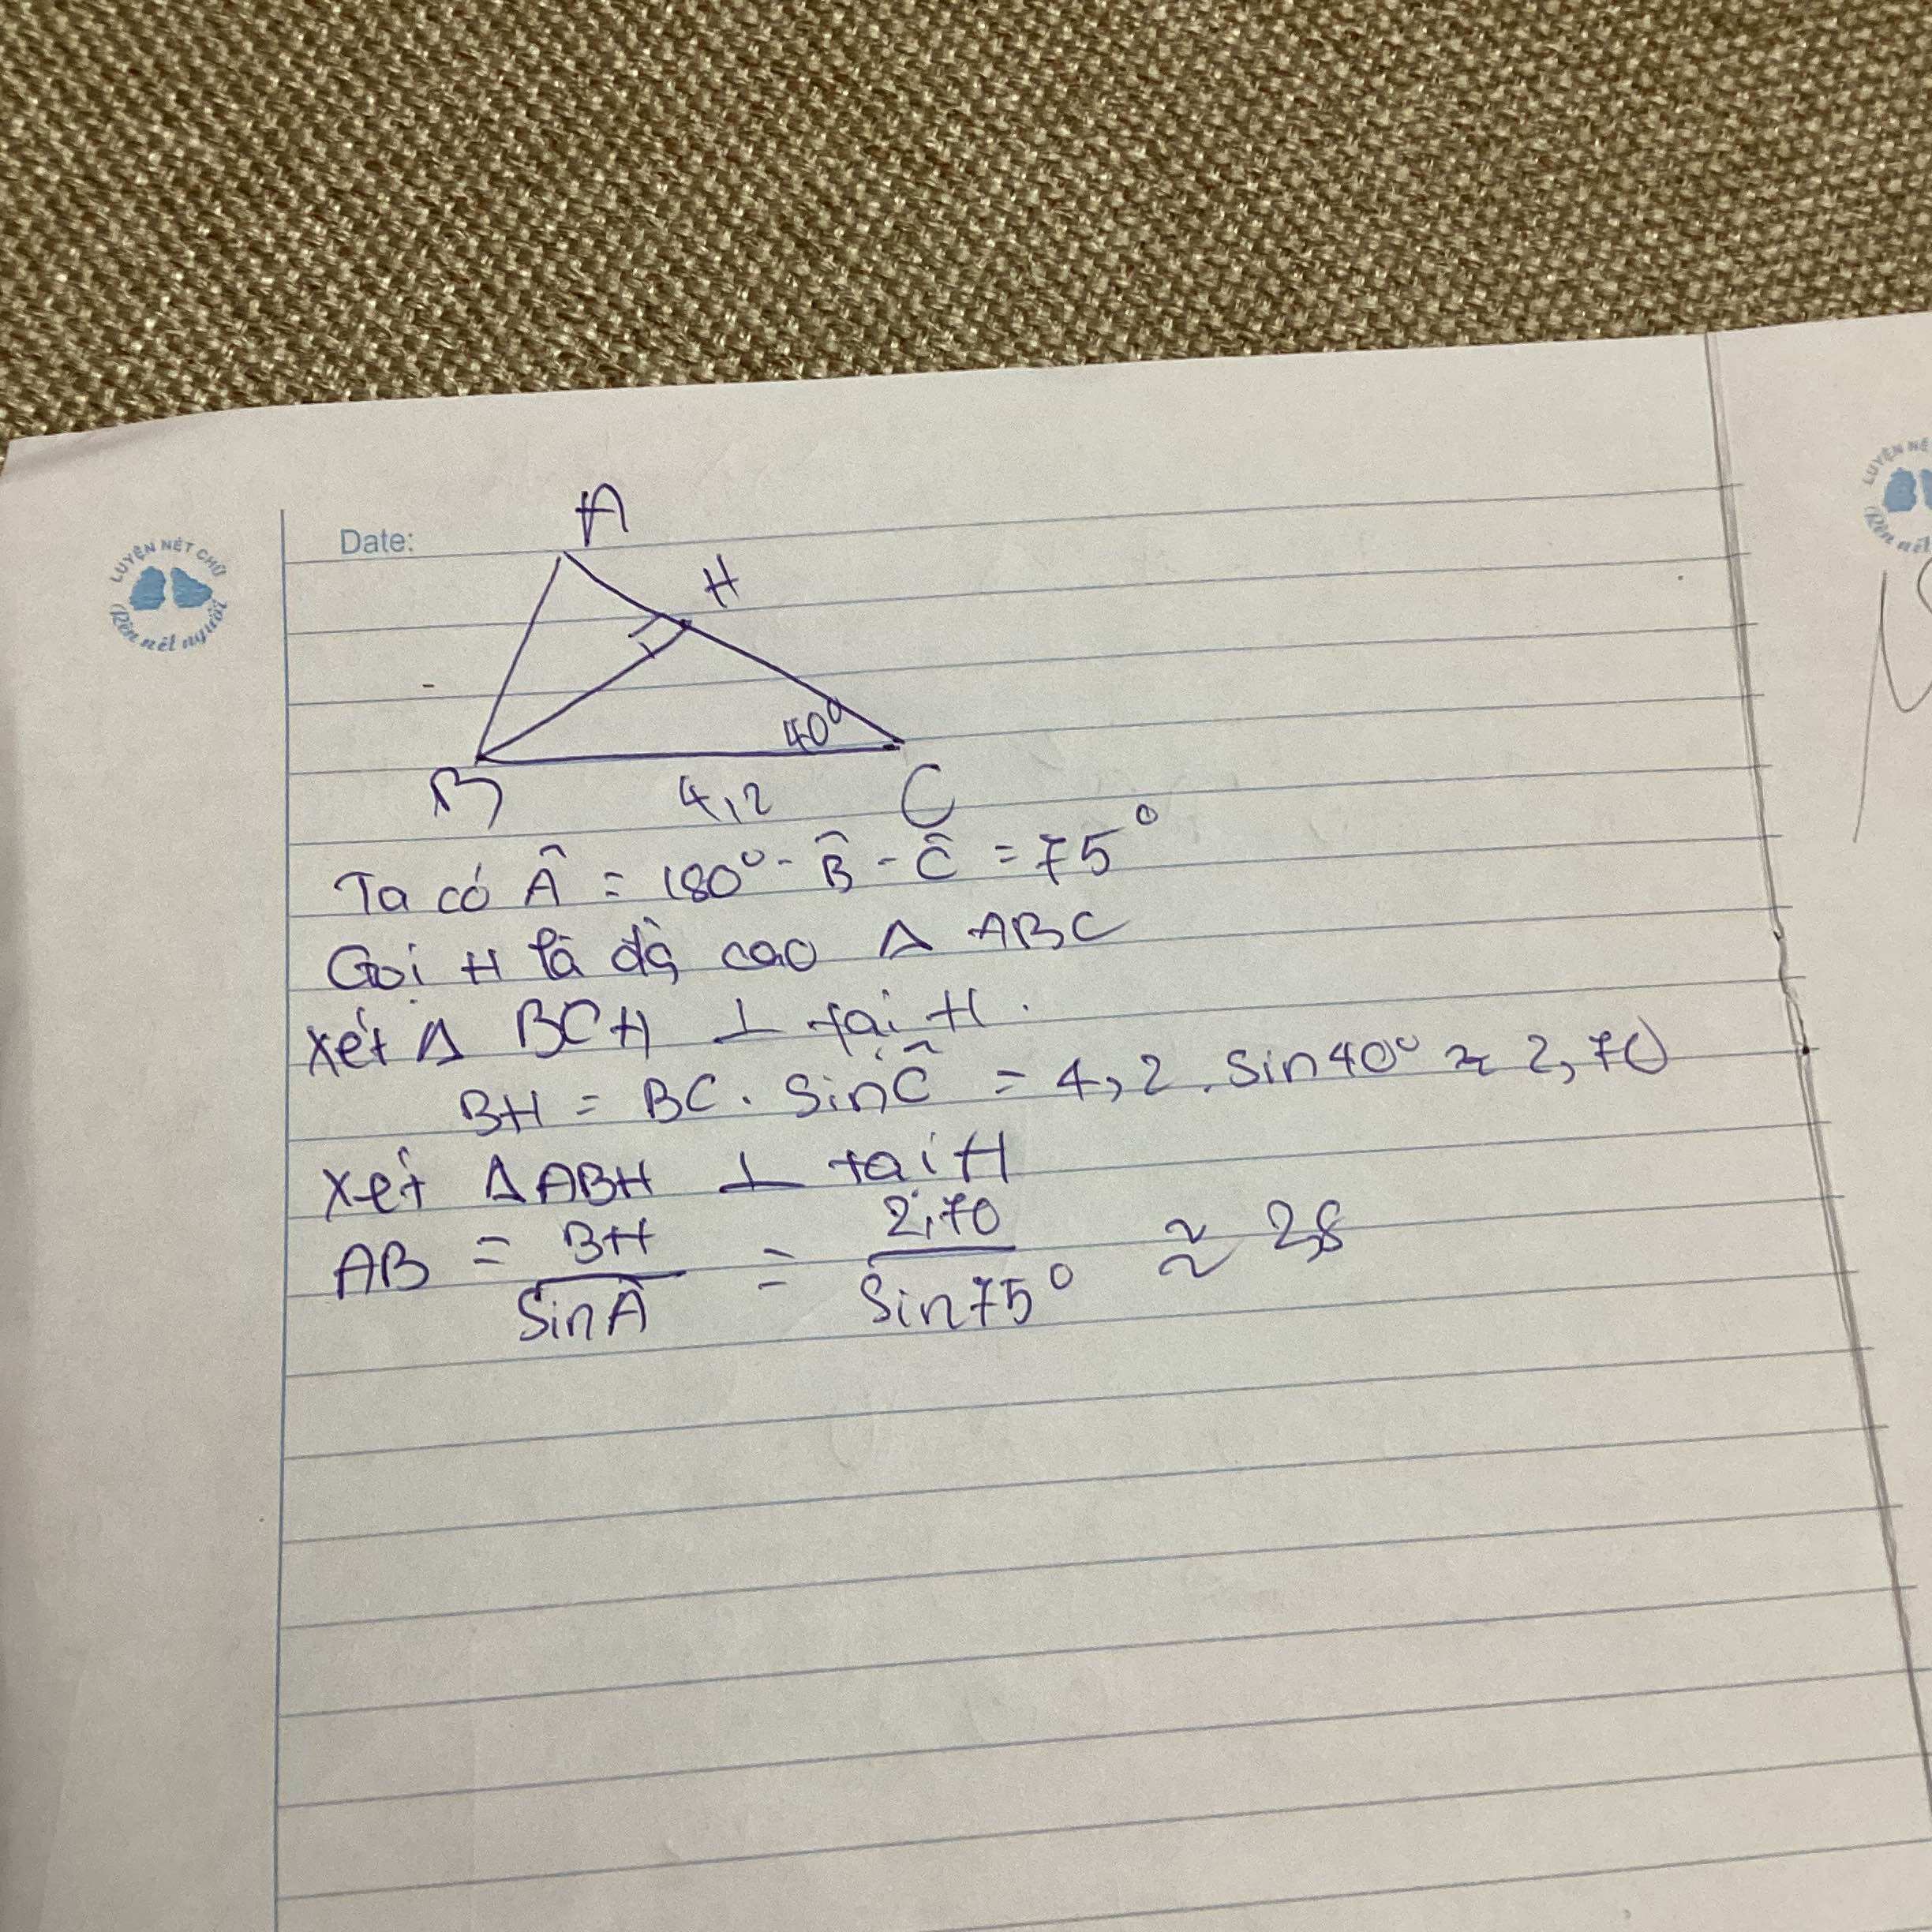 LUYỆN NÉT CHỮ
Rèn nét người
Date:
A
H
40°
B
4,2
C
Ta có Â = 180° - B̂ - Ĉ = 75°
Gọi H là đg cao Δ ABC
Xét Δ BCH ⊥ tại H.
BH = BC . Sin Ĉ = 4,2 . Sin40° ≈ 2,70
Xét ΔABH ⊥ tại H
AB = BH / Sin A = 2,70 / Sin75° ≈ 2,8
LUYỆN NÉ
Rèn nét